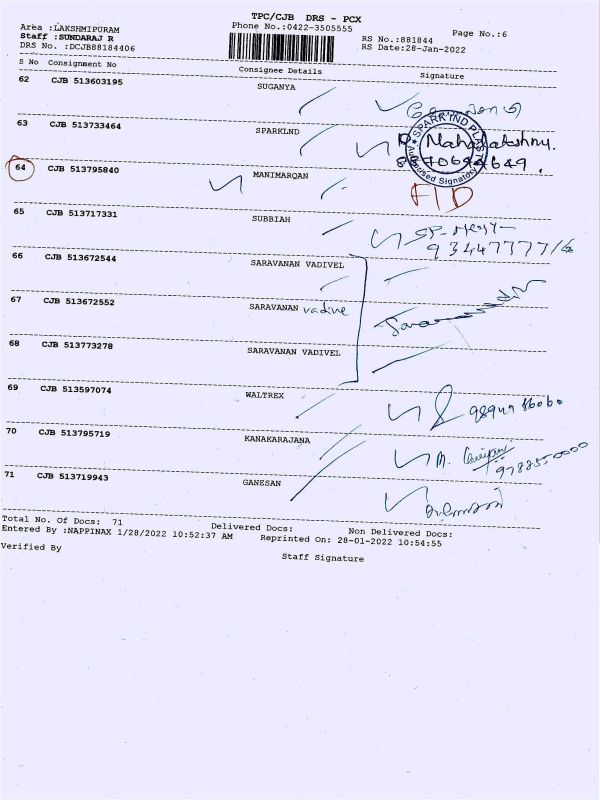 TPC/CJB DRS - PCX
Area :LAKSHMIPURAM
Phone No.:0422-3505555
Page No.:6
Staff :SUNDARAJ R
RS No.:881844
DRS No. :DCJB88184406
RS Date:28-Jan-2022
S No Consignment No Consignee Details Signature
62 CJB 513603195 SUGANYA
63 CJB 513733464 SPARKLND
SPARK IND PLUS
Authorised Signatory
P. Mahalakshmi.
64 CJB 513795840 MANIMARQAN
65 CJB 513717331 SUBBIAH
66 CJB 513672544 SARAVANAN VADIVEL
67 CJB 513672552 SARAVANAN vadive
68 CJB 513773278 SARAVANAN VADIVEL
69 CJB 513597074 WALTREX
70 CJB 513795719 KANAKARAJANA
M.
71 CJB 513719943 GANESAN
Total No. Of Docs: 71 Delivered Docs: Non Delivered Docs:
Entered By :NAPPINAX 1/28/2022 10:52:37 AM Reprinted On: 28-01-2022 10:54:55
Verified By Staff Signature